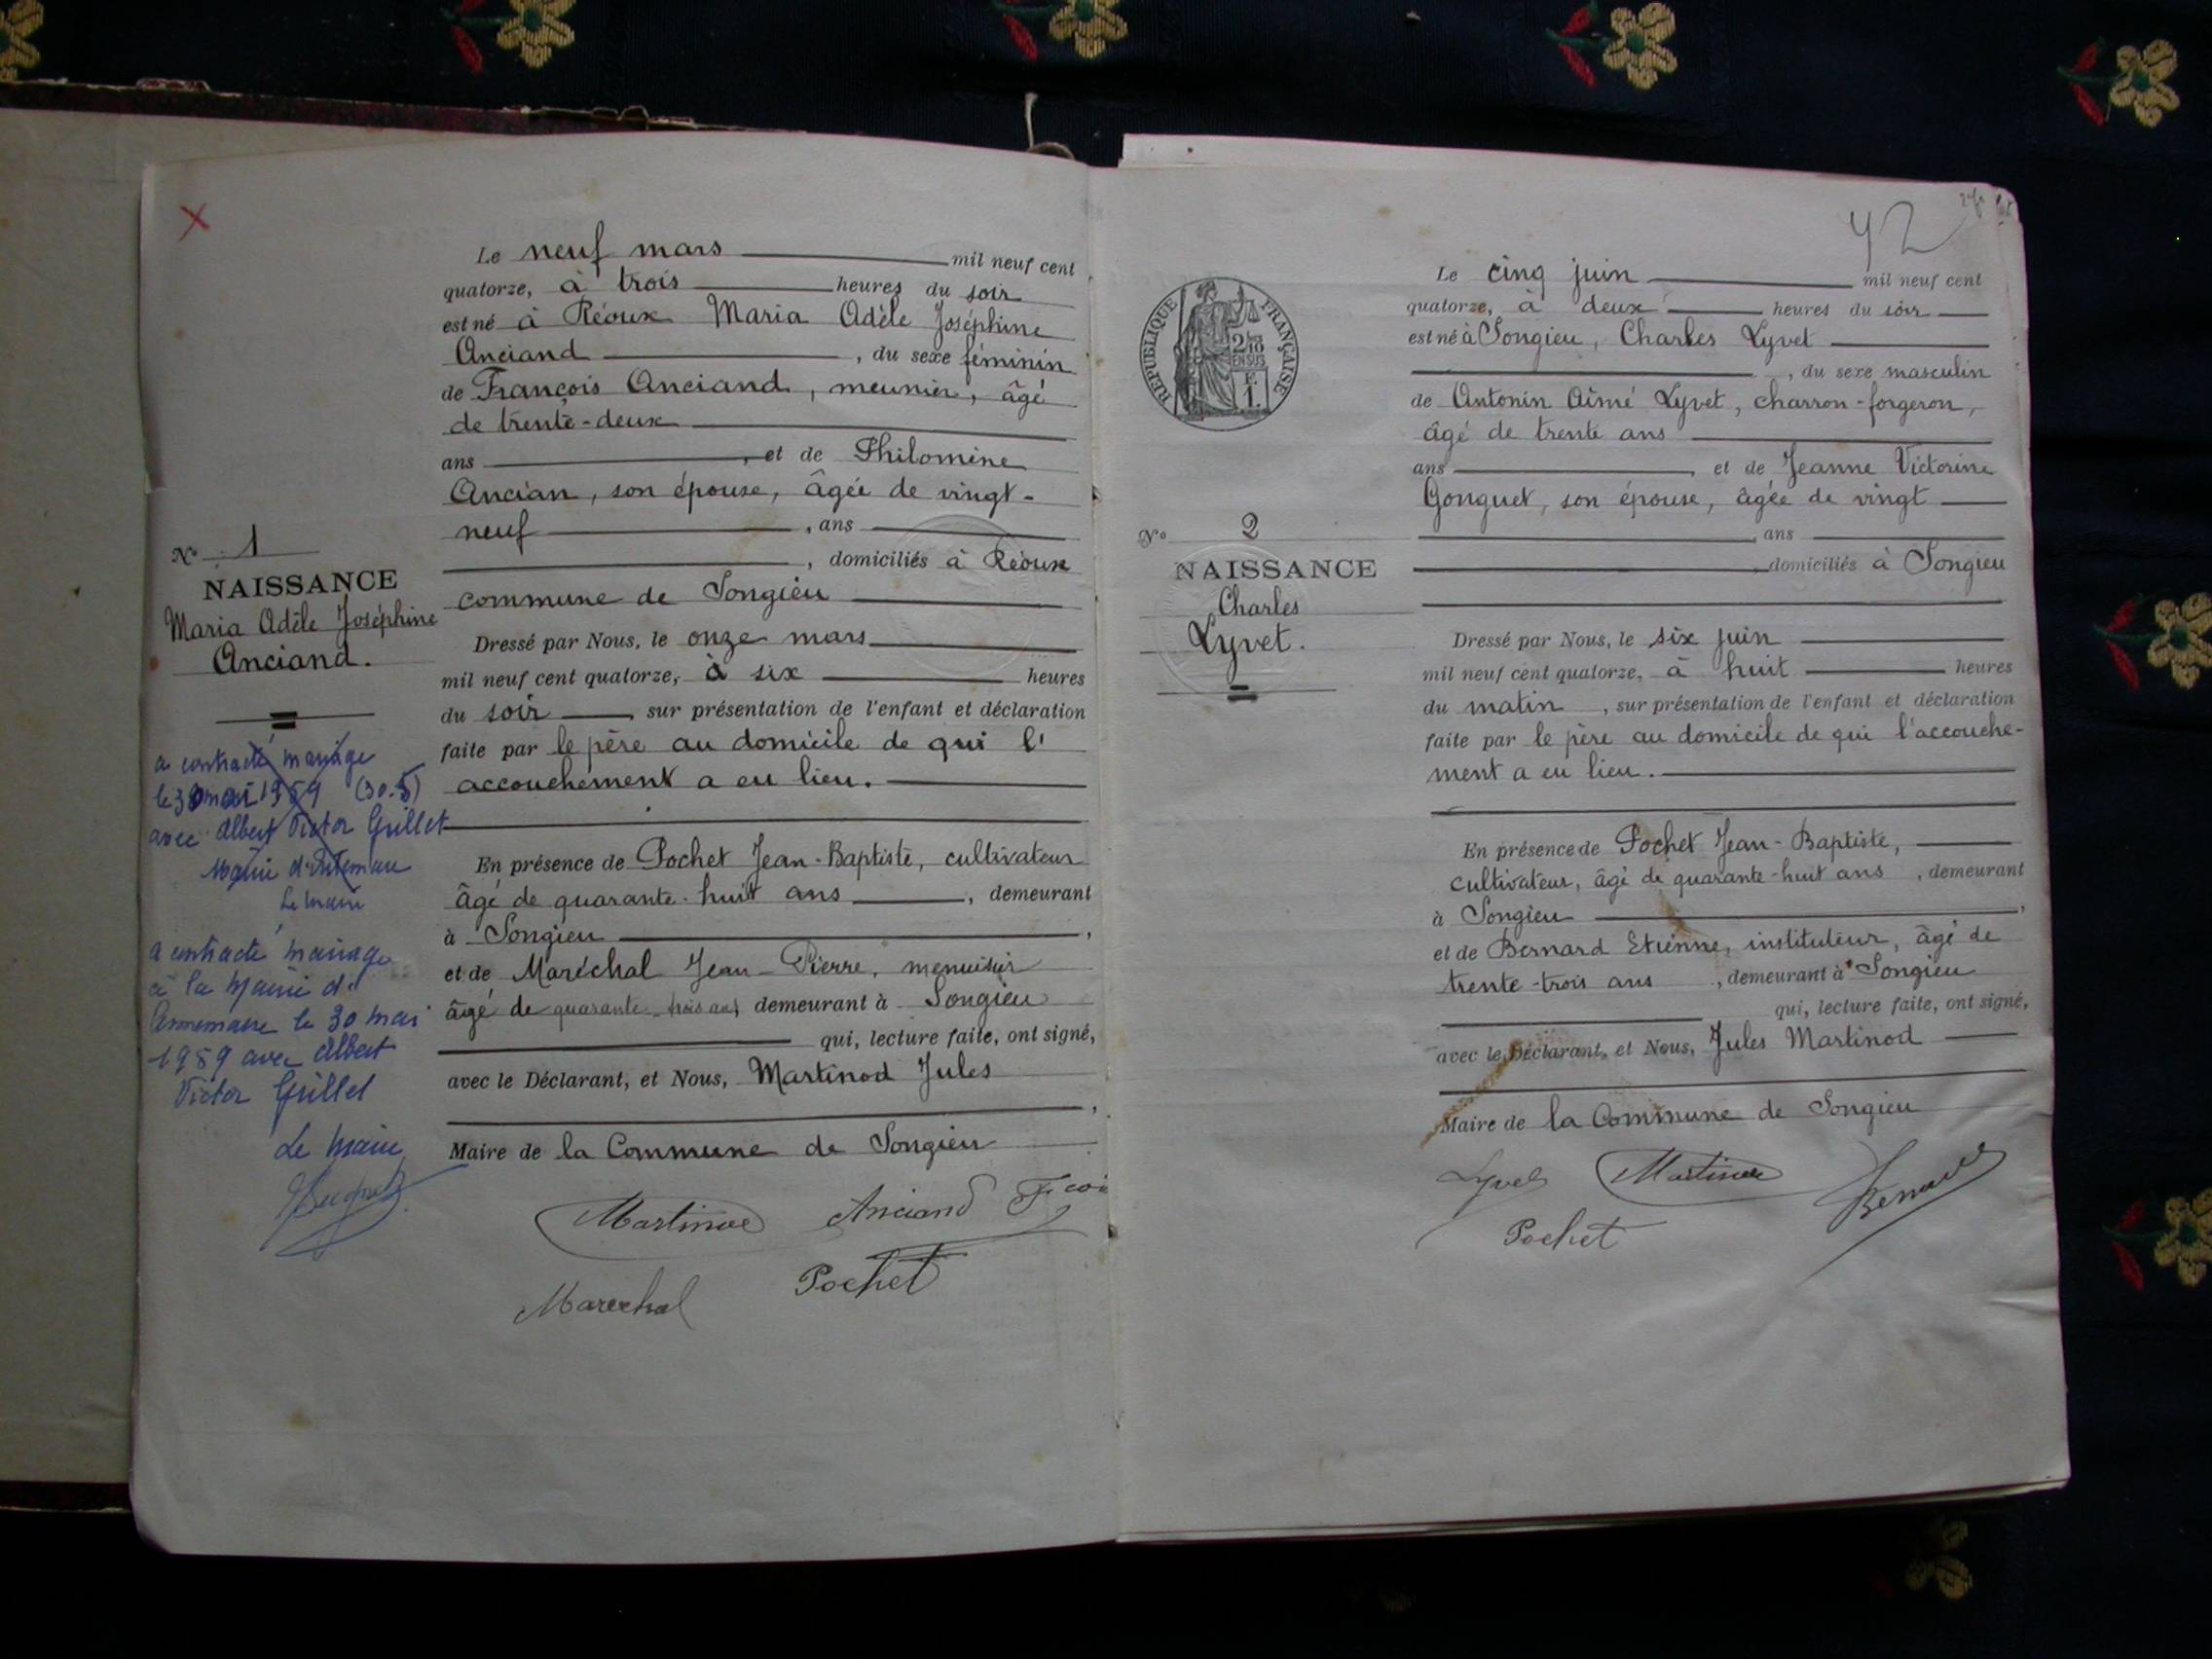 Le neuf mars mil neuf cent
quatorze, à trois heures du soir
est né à Réoux Maria Adèle Joséphine
Anciand , du sexe féminin
de François Anciand, meunier, âgé
de trente-deux
ans , et de Philomine
Ancian, son épouse, âgée de vingt-
neuf , ans
, domiciliés à Réoux
commune de Songieu
Dressé par Nous, le onze mars
mil neuf cent quatorze, à six heures
du soir , sur présentation de l'enfant et déclaration
faite par le père au domicile de qui l'
accouchement a eu lieu.
En présence de Pochet Jean-Baptiste, cultivateur
âgé de quarante-huit ans , demeurant
à Songieu ,
et de Maréchal Jean-Pierre, menuisier
âgé de quarante-trois ans demeurant à Songieu
qui, lecture faite, ont signé,
avec le Déclarant, et Nous, Martinod Jules
,
Maire de la Commune de Songieu
Martinod Anciand Fçois
Marechal Pochet
N° 1
NAISSANCE
Maria Adèle Joséphine
Anciand.
a contracté mariage
le 30 mai 1959 (30.5)
avec Albert Victor Grillet
Mairie
Le maire
a contracté mariage
à la Mairie d'
Annemasse le 30 mai
1959 avec Albert
Victor Grillet
Le Maire
42
RÉPUBLIQUE FRANÇAISE
2/10
EN SUS
F.
1.
N° 2
NAISSANCE
Charles
Lyvet.
Le cinq juin mil neuf cent
quatorze, à deux heures du soir
est né à Songieu, Charles Lyvet
, du sexe masculin
de Antonin Aimé Lyvet, charron-forgeron,
âgé de trente ans
ans , et de Jeanne Victorine
Gonguet, son épouse, âgée de vingt
, ans
, domiciliés à Songieu
Dressé par Nous, le six juin
mil neuf cent quatorze, à huit heures
du matin , sur présentation de l'enfant et déclaration
faite par le père au domicile de qui l'accouche-
ment a eu lieu.
En présence de Pochet Jean-Baptiste,
cultivateur, âgé de quarante-huit ans , demeurant
à Songieu ,
et de Bernard Etienne, instituteur, âgé de
trente-trois ans , demeurant à Songieu
qui, lecture faite, ont signé,
avec le Déclarant, et Nous, Jules Martinod
Maire de la Commune de Songieu
Lyvet Martinod Bernard
Pochet